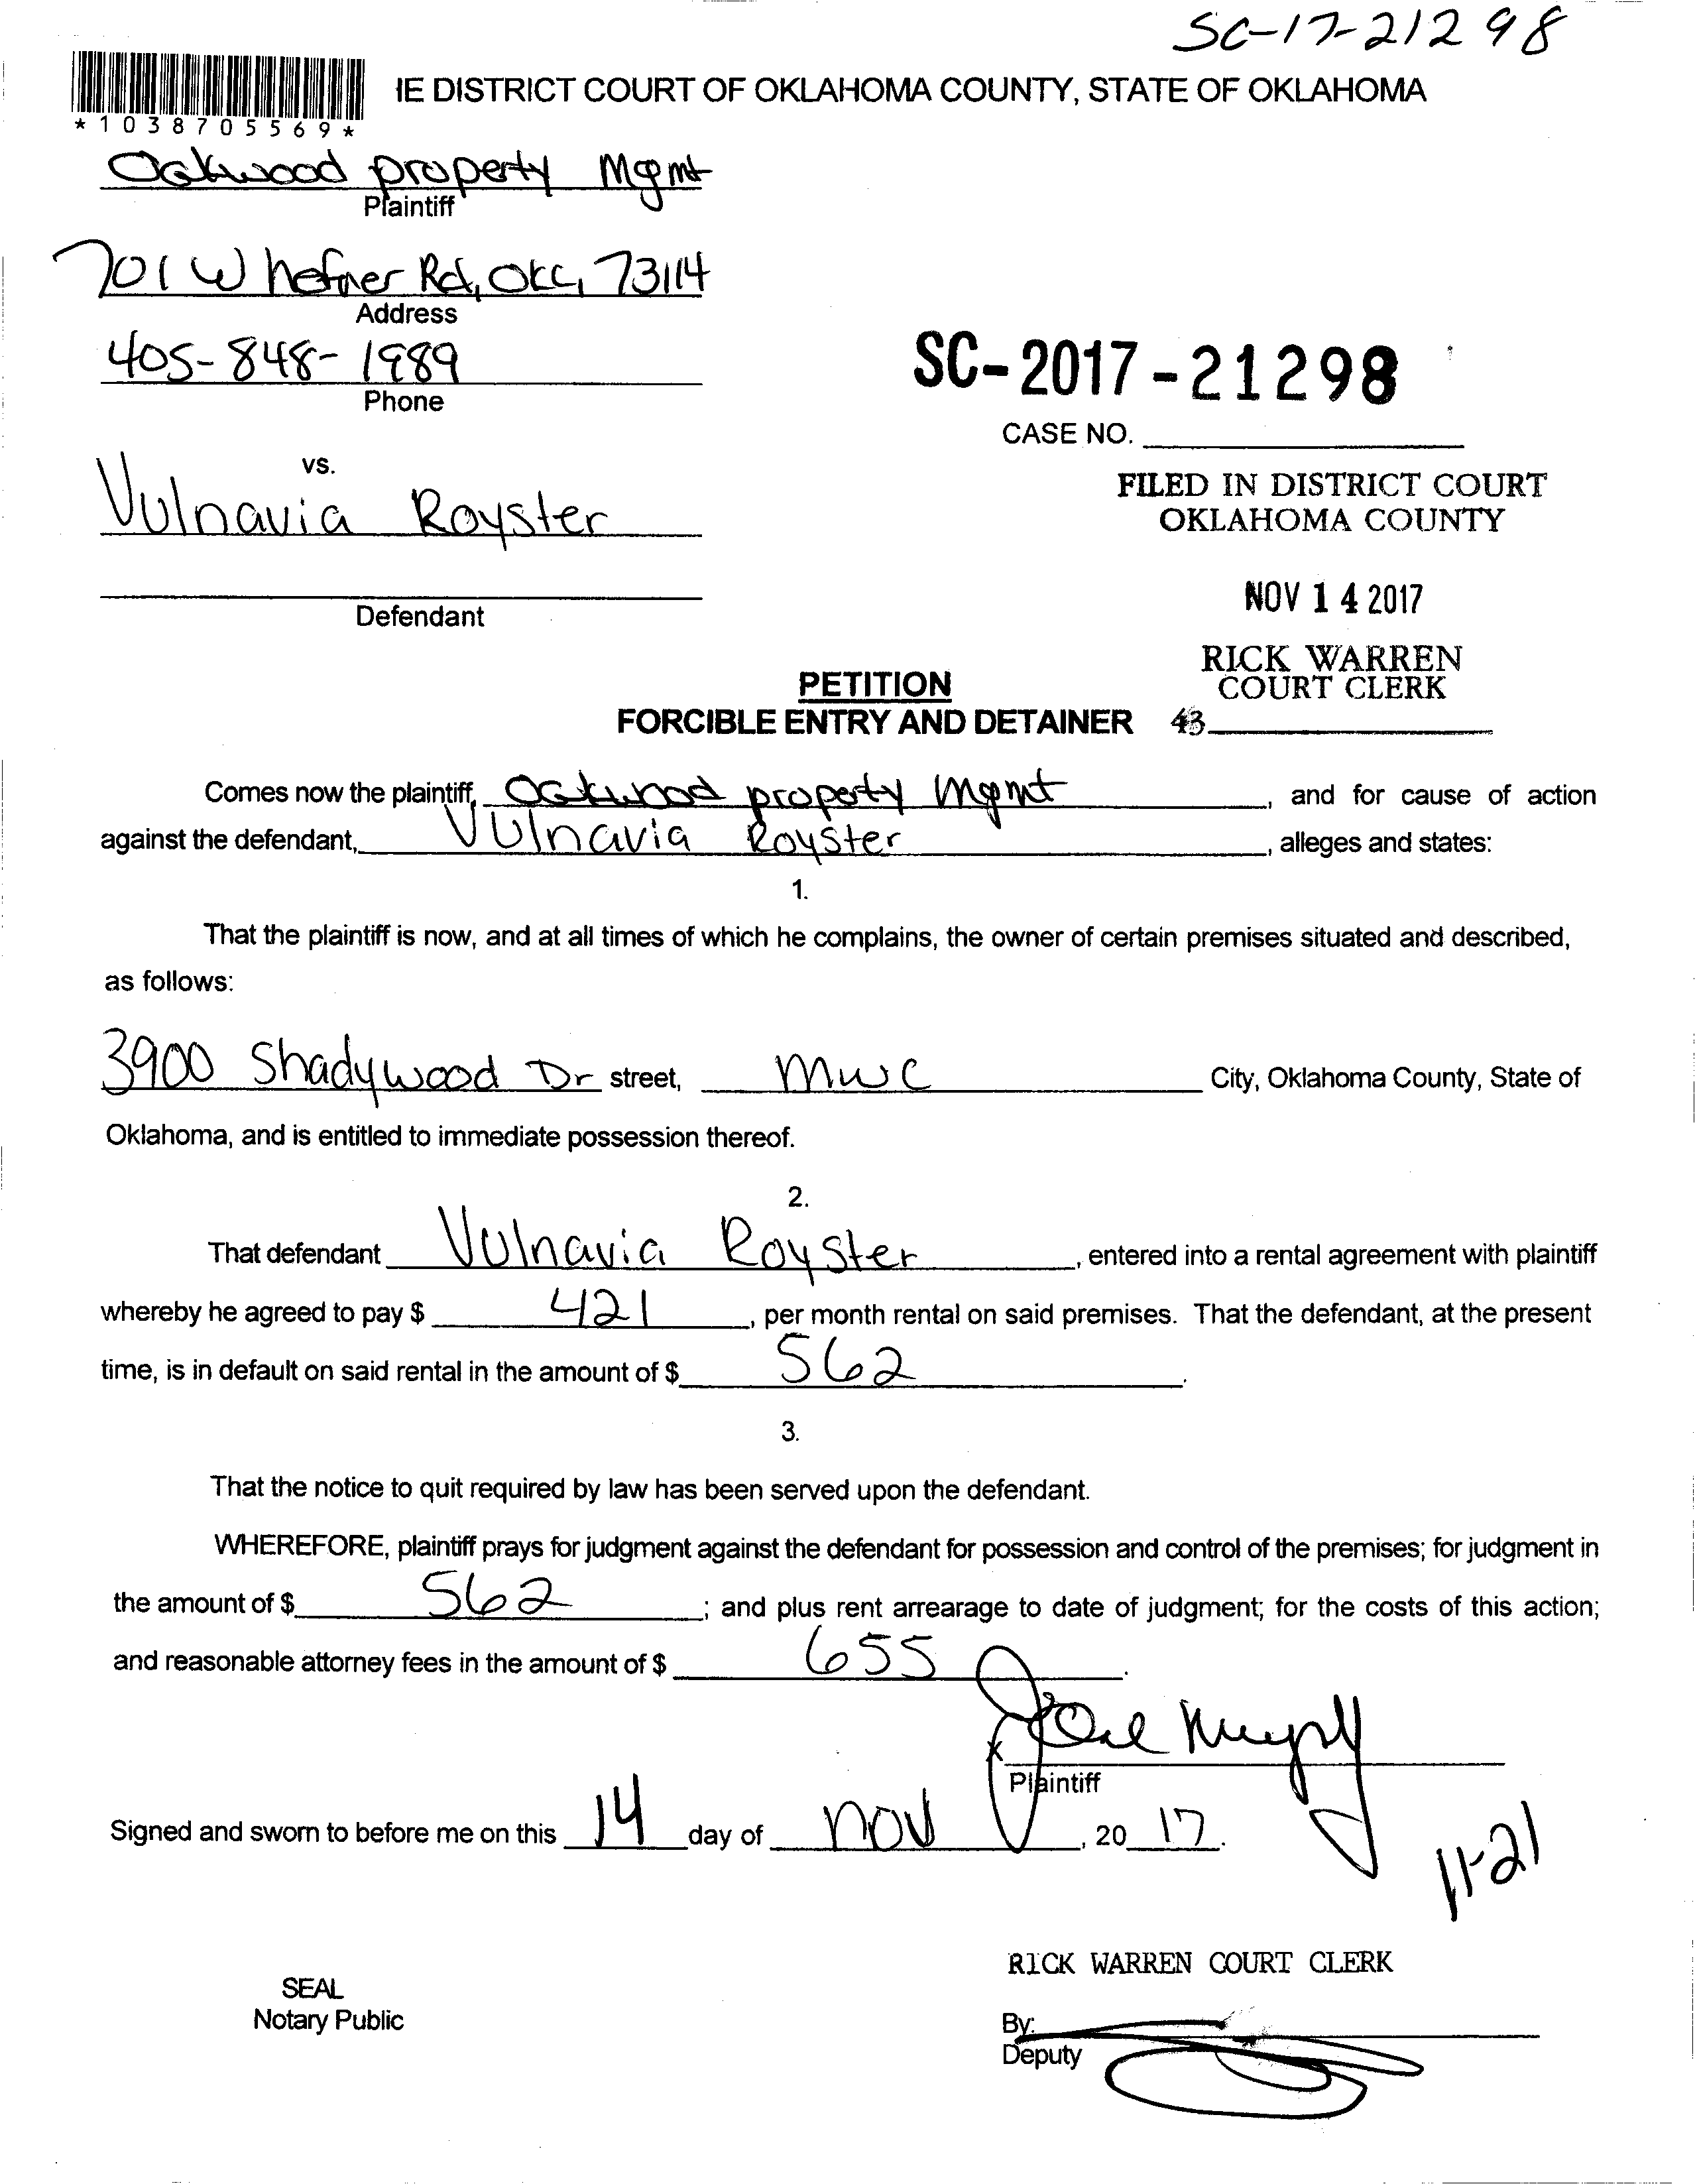 SC-17-21298
IE DISTRICT COURT OF OKLAHOMA COUNTY, STATE OF OKLAHOMA
*1038705569*
Oakwood property Mgmt
Plaintiff
701 W hefner Rd, OKC, 73114
Address
405-848-1989
Phone
SC-2017-21298
CASE NO.
vs.
Vulnavia Royster
FILED IN DISTRICT COURT
OKLAHOMA COUNTY
Defendant
NOV 14 2017
RICK WARREN
COURT CLERK
PETITION
FORCIBLE ENTRY AND DETAINER 43
Comes now the plaintiff, Oakwood property Mgmt, and for cause of action
against the defendant, Vulnavia Royster, alleges and states:
1.
That the plaintiff is now, and at all times of which he complains, the owner of certain premises situated and described,
as follows:
3900 Shadywood Dr street, MWC City, Oklahoma County, State of
Oklahoma, and is entitled to immediate possession thereof.
2.
That defendant Vulnavia Royster, entered into a rental agreement with plaintiff
whereby he agreed to pay $ 421, per month rental on said premises. That the defendant, at the present
time, is in default on said rental in the amount of $ 562.
3.
That the notice to quit required by law has been served upon the defendant.
WHEREFORE, plaintiff prays for judgment against the defendant for possession and control of the premises; for judgment in
the amount of $ 562; and plus rent arrearage to date of judgment; for the costs of this action;
and reasonable attorney fees in the amount of $ 655.
x
Plaintiff
Signed and sworn to before me on this 14 day of nov, 20 17.
11-21
RICK WARREN COURT CLERK
SEAL
Notary Public
By:
Deputy